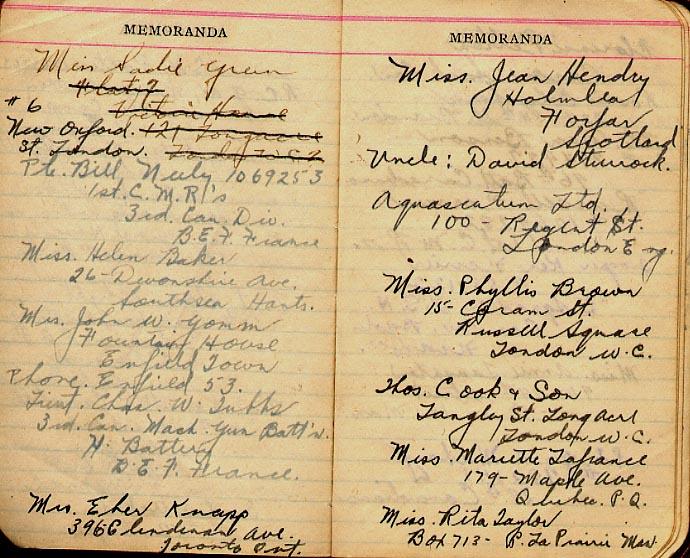 MEMORANDA
Miss Sadie Green
Flat 7
# 6
New Oxford. 121
St. London.
Pte. Bill, Neily 1069253
1st. C. M. R's
3rd. Can. Div.
B.E.F. France
Miss. Helen Baker
26- Devonshire Ave.
Southsea Hants.
Mrs. John W. Yomm
Fountain House
Enfield Town
Phone. Enfield 53.
Lieut. Chas. W. Tubbs
3rd. Can. Mach. Gun Batt'n.
H. Battery
B.E.F. France.
Mrs. Eber Knapp
396 Glendenan Ave.
Toronto Ont.
MEMORANDA
Miss. Jean Hendry
Holmlea
Forfar
Scotland
Uncle: David Sturrock.
Aquascutum Ltd.
100- Regent St.
London Eng.
Miss. Phyllis Brown
15- Coram St.
Russell Square
London W.C.
Thos. Cook & Son
Langley St. Long Acre
London W.C.
Miss. Mariette Lafrance
179- Maple Ave.
Quebec. P.Q.
Miss. Rita Taylor
Box 713- P. La Prairie Man.